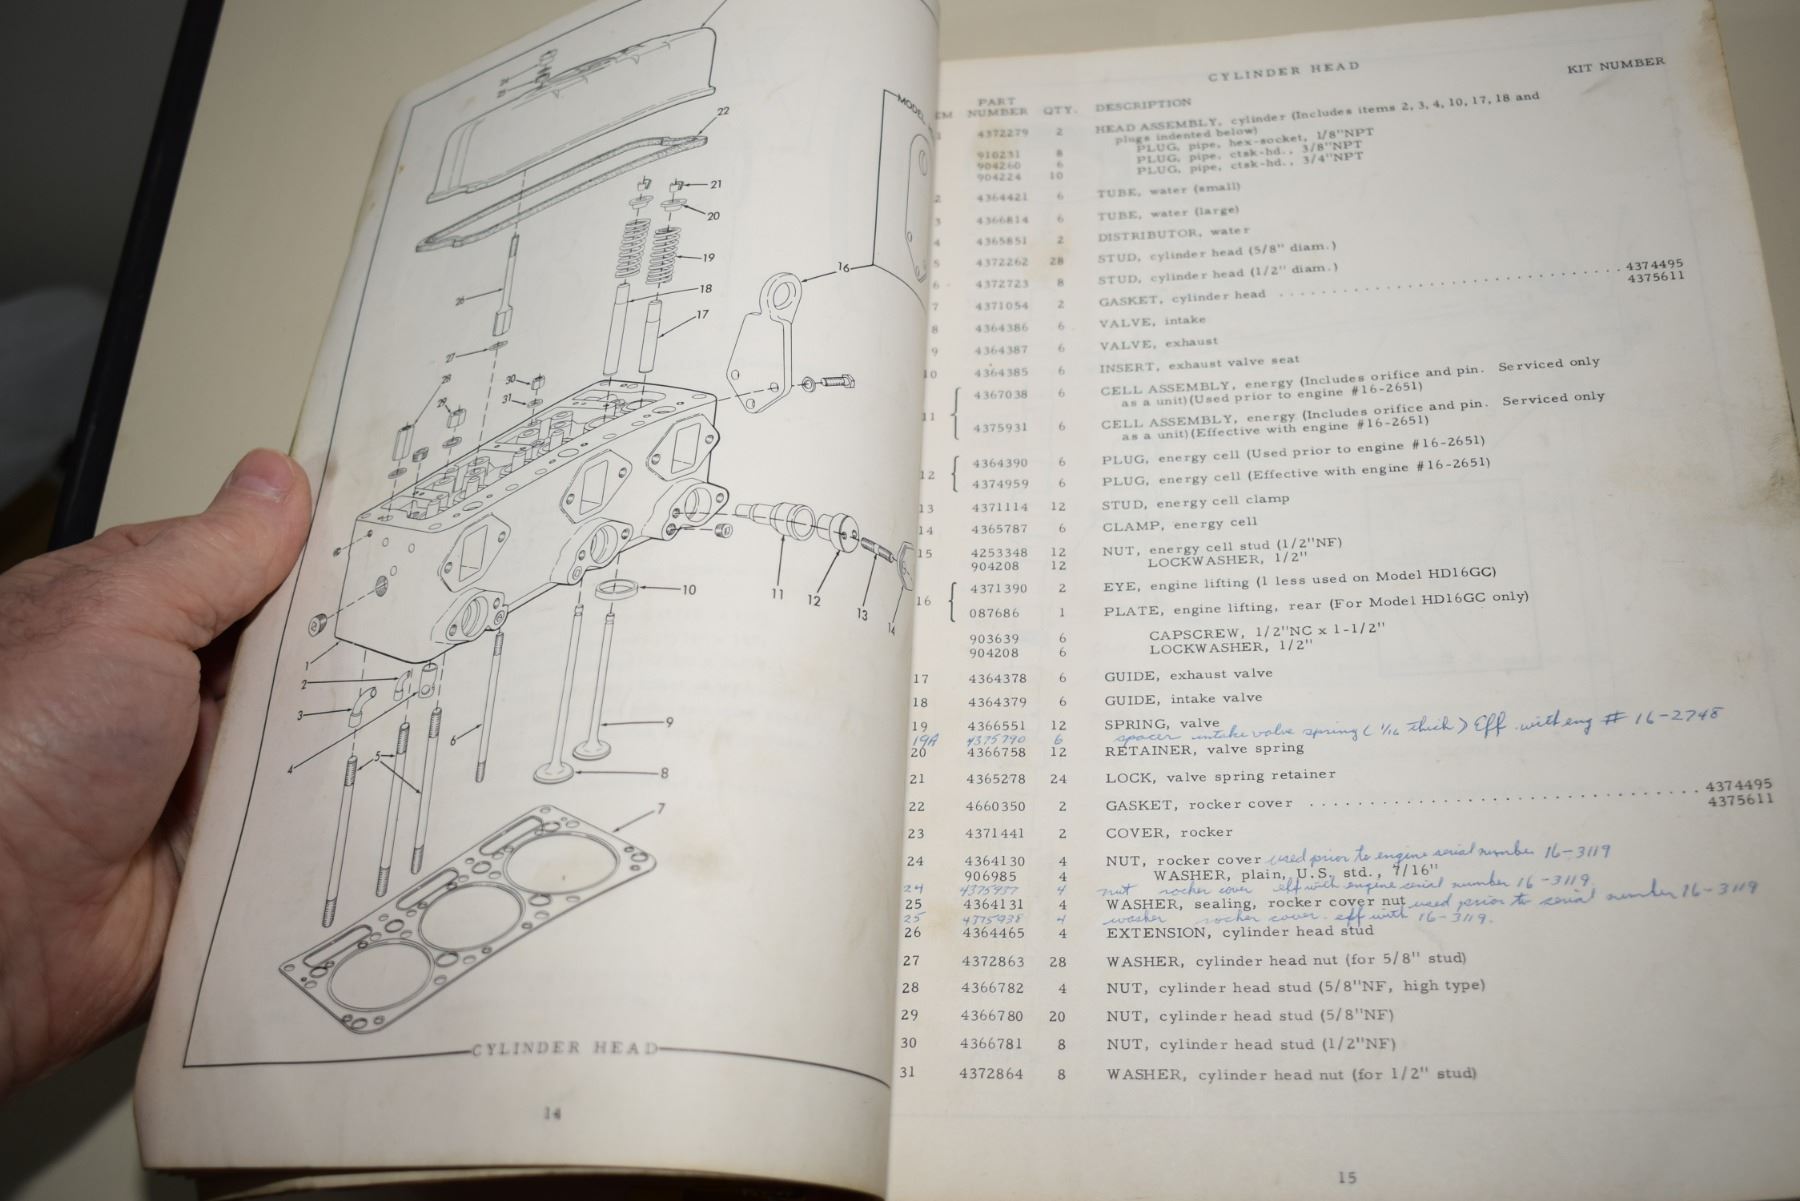 22
21
20
19
18
17
16
26
27
28
29
30
31
10
11
12
13
14
1
2
3
4
5
6
9
8
7
MODEL
CYLINDER HEAD
14
CYLINDER HEAD
KIT NUMBER
PART
EM NUMBER QTY. DESCRIPTION
1 4372279 2 HEAD ASSEMBLY, cylinder (Includes items 2, 3, 4, 10, 17, 18 and
plugs indented below)
910231 8 PLUG, pipe, hex-socket, 1/8"NPT
904260 6 PLUG, pipe, ctsk-hd., 3/8"NPT
904224 10 PLUG, pipe, ctsk-hd., 3/4"NPT
2 4364421 6 TUBE, water (small)
3 4366814 6 TUBE, water (large)
4 4365851 2 DISTRIBUTOR, water
5 4372262 28 STUD, cylinder head (5/8" diam.)
6 4372723 8 STUD, cylinder head (1/2" diam.)
7 4371054 2 GASKET, cylinder head . . . . . . . . . . . . . . . . . . . . 4374495
4375611
8 4364386 6 VALVE, intake
9 4364387 6 VALVE, exhaust
10 4364385 6 INSERT, exhaust valve seat
11 4367038 6 CELL ASSEMBLY, energy (Includes orifice and pin. Serviced only
as a unit)(Used prior to engine #16-2651)
4375931 6 CELL ASSEMBLY, energy (Includes orifice and pin. Serviced only
as a unit)(Effective with engine #16-2651)
12 4364390 6 PLUG, energy cell (Used prior to engine #16-2651)
4374959 6 PLUG, energy cell (Effective with engine #16-2651)
13 4371114 12 STUD, energy cell clamp
14 4365787 6 CLAMP, energy cell
15 4253348 12 NUT, energy cell stud (1/2"NF)
904208 12 LOCKWASHER, 1/2"
16 4371390 2 EYE, engine lifting (1 less used on Model HD16GC)
087686 1 PLATE, engine lifting, rear (For Model HD16GC only)
903639 6 CAPSCREW, 1/2"NC x 1-1/2"
904208 6 LOCKWASHER, 1/2"
17 4364378 6 GUIDE, exhaust valve
18 4364379 6 GUIDE, intake valve
19 4366551 12 SPRING, valve
19A 4375790 6 spacer intake valve spring (1/16 thick) Eff. with eng # 16-2748
20 4366758 12 RETAINER, valve spring
21 4365278 24 LOCK, valve spring retainer
22 4660350 2 GASKET, rocker cover . . . . . . . . . . . . . . . . . . . . 4374495
4375611
23 4371441 2 COVER, rocker
24 4364130 4 NUT, rocker cover used prior to engine serial number 16-3119
906985 4 WASHER, plain, U.S. std., 7/16"
24 4375937 4 nut rocker cover eff with engine serial number 16-3119
25 4364131 4 WASHER, sealing, rocker cover nut used prior to serial number 16-3119
25 4375938 4 washer rocker cover. eff with 16-3119.
26 4364465 4 EXTENSION, cylinder head stud
27 4372863 28 WASHER, cylinder head nut (for 5/8" stud)
28 4366782 4 NUT, cylinder head stud (5/8"NF, high type)
29 4366780 20 NUT, cylinder head stud (5/8"NF)
30 4366781 8 NUT, cylinder head stud (1/2"NF)
31 4372864 8 WASHER, cylinder head nut (for 1/2" stud)
15